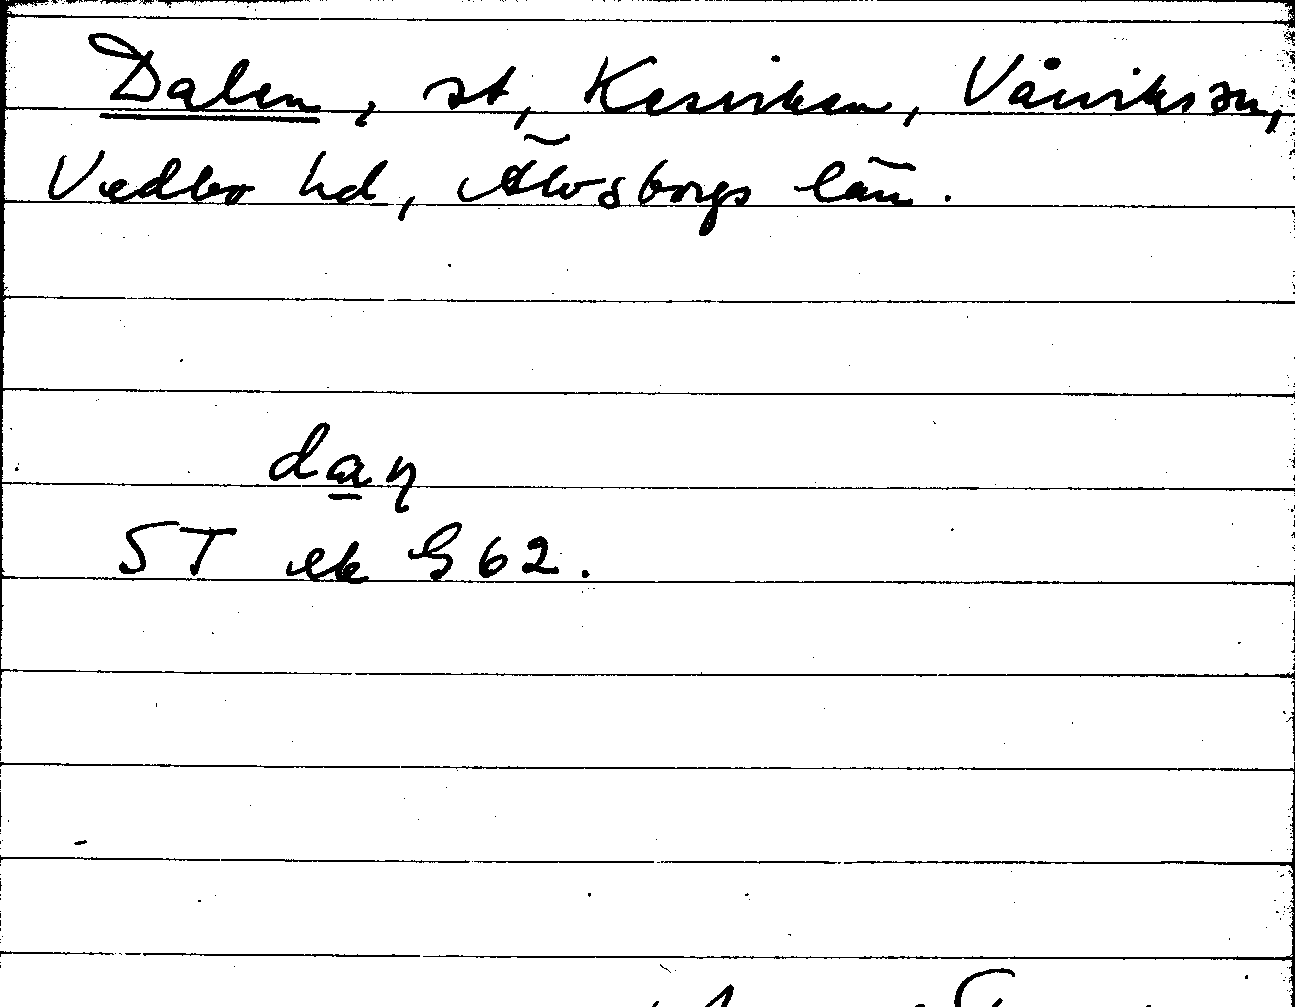 Dalen, st, Kesviken, Vårviks sn,
Vedbo hd, Älvsborgs län.
daη
ST ek G 62.